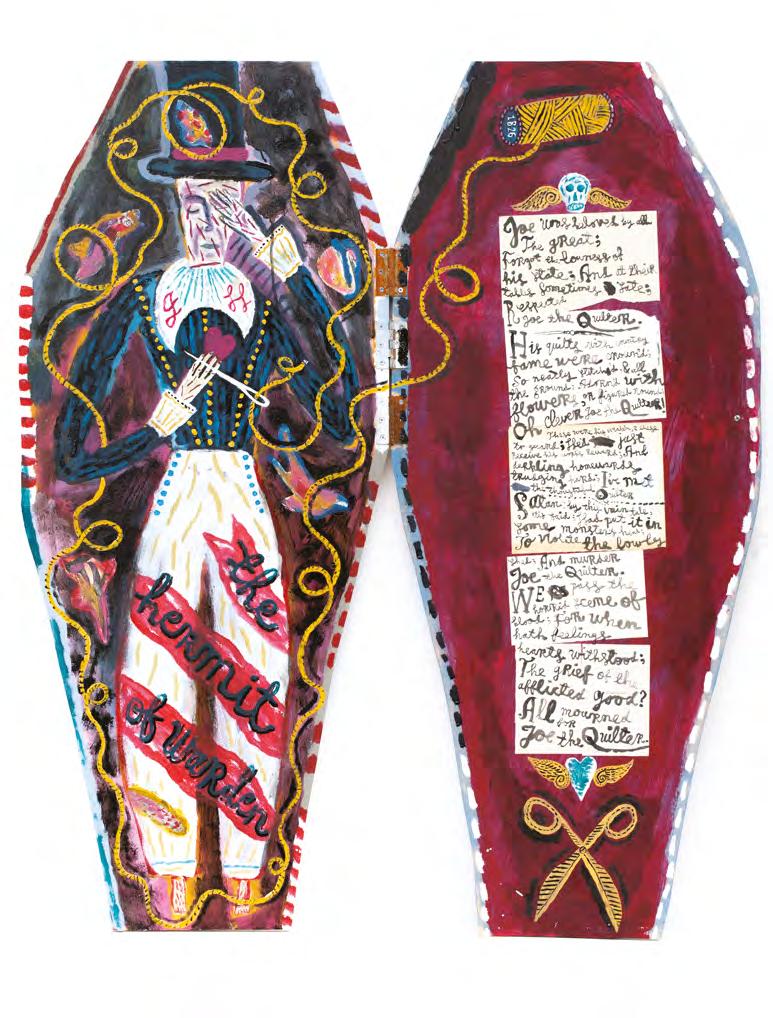 the
hermit
of Warden
1826
Joe was beloved by all
The great;
Forgot the lowness of
his state; And at their
tables sometimes sate;
Respected
Joe the Quilter.
His quilts with
fame were
So neatly stitched & all
the ground; Adorn'd with
flowers or figured round;
Oh clever Joe the Quilter!
just
And
homewards
trudging I've met
Quilter
Satan by thy vain tale;
put it in
some monsters
To Violate the lowly
And murder
Joe the Quilter.
WE pass the
horrid scene of
blood; for when
hath feelings
hearts withstood;
The grief of the
afflicted good?
All mourned
for
Joe the Quilter.